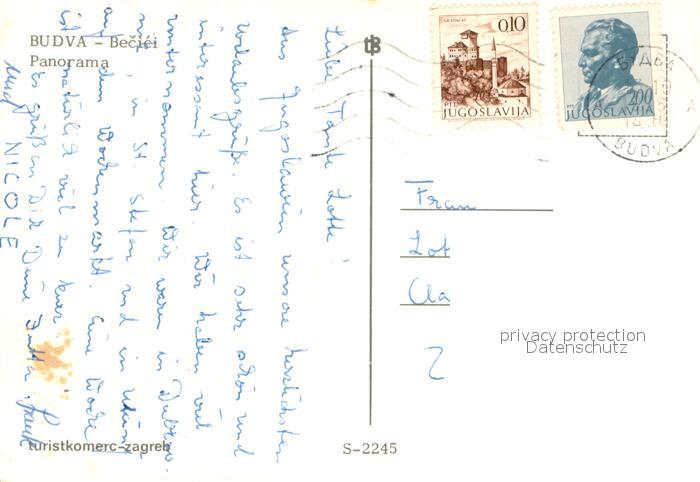 BUDVA – Bečići
Panorama
GRADAČAC
0,10
PTT
JUGOSLAVIJA
2,00
PTT
JUGOSLAVIJA
BUDVA
Liebe Tante Lotte!
Aus Jugoslawien unsere herzlichsten
Urlaubsgrüße. Es ist sehr schön und
interessant hier. Wir haben viel
unternommen. Wir waren in
in St. Stefan und in
auf dem Wochenmarkt. Eine Woche
ist natürlich viel zu kurz.
Es grüßen Dich Deine
und NICOLE
Frau
Lot
privacy protection
Datenschutz
turistkomerc-zagreb
S-2245